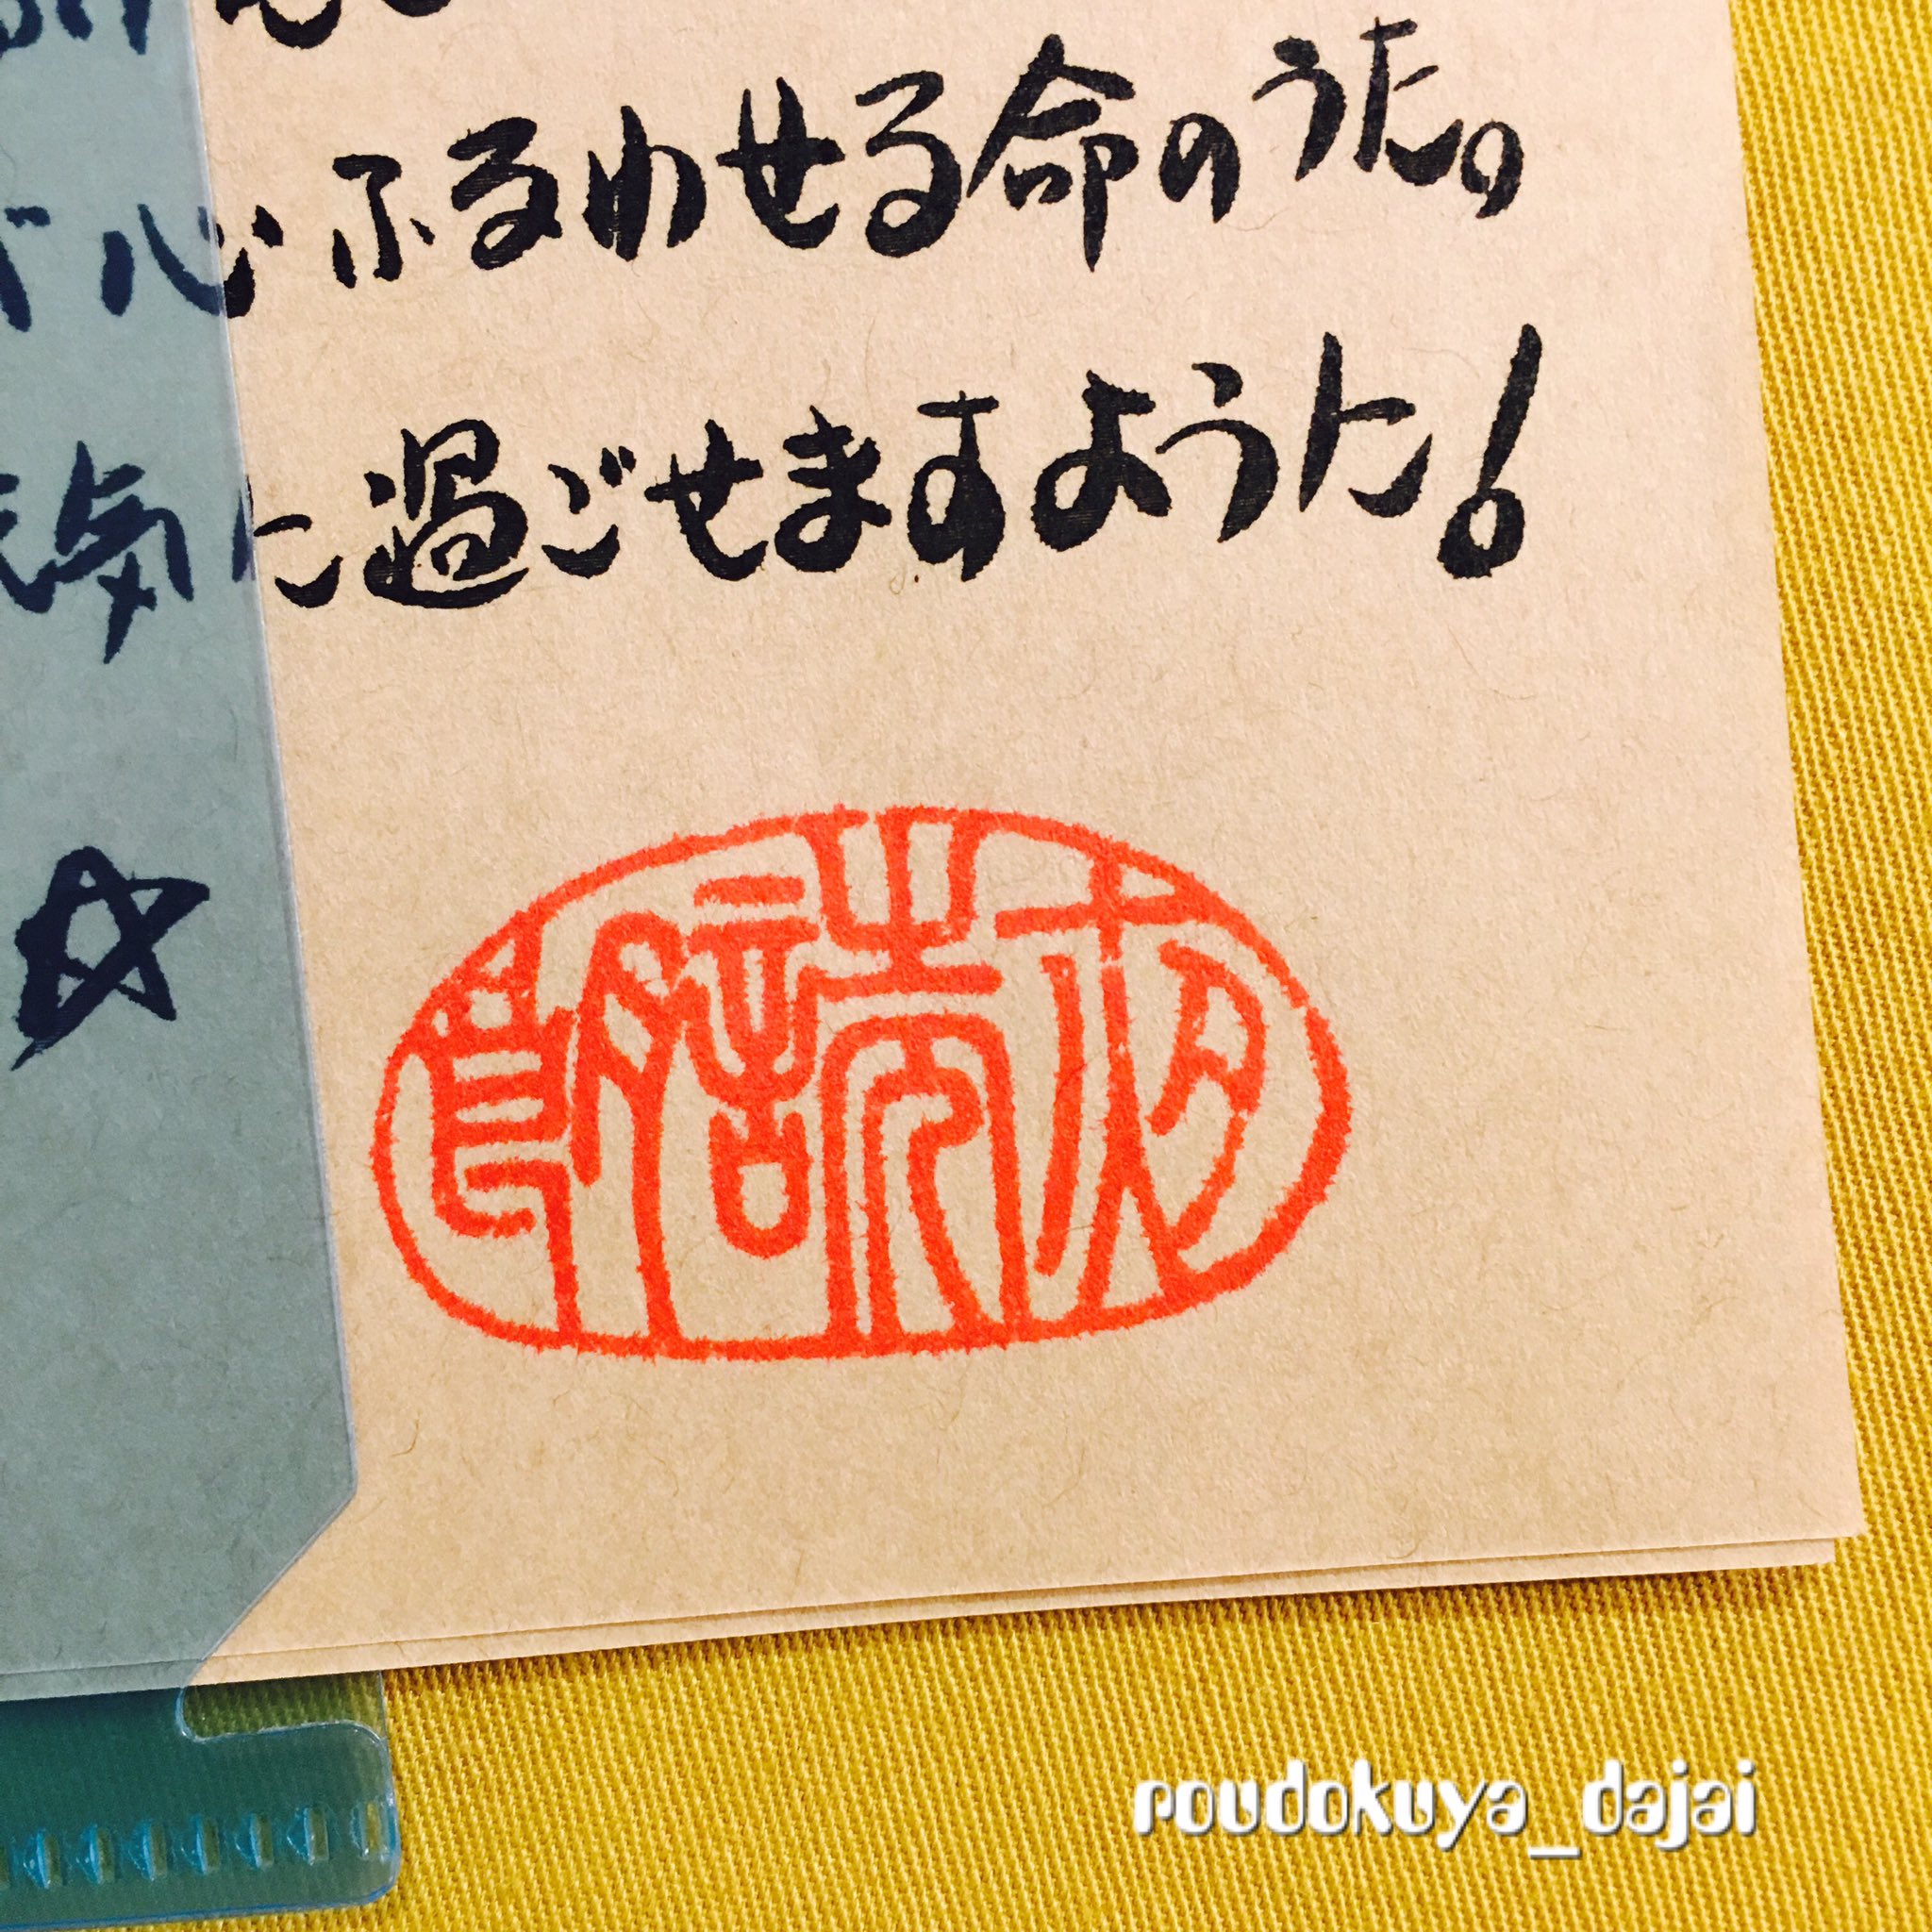 心ふるわせる命のうた。
気に過ごせますように!
☆
roudokuya_dajai